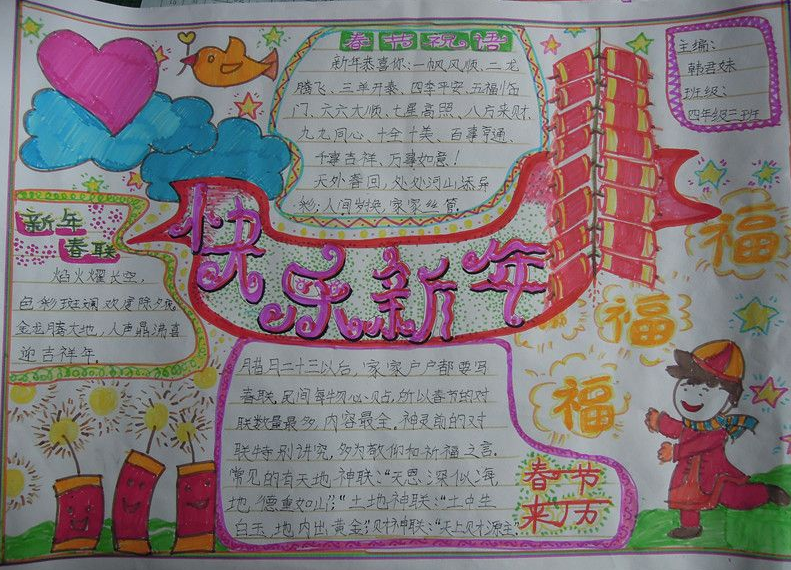 春节祝语
新年恭喜你:一帆风顺、二龙
腾飞、三羊开泰、四季平安、五福临
门、六六大顺、七星高照、八方来财、
九九同心、十全十美、百事亨通、
千事吉祥、万事如意！
天外春回,处处河山添异
彩;人间岁换,家家丝管
主编:
韩君妹
班级:
四年级三班
新年
春联
焰火耀长空,
色彩斑斓欢度除夕夜
金龙腾大地,人声鼎沸喜
迎吉祥年。
快乐新年
福
福
福
腊月二十三以后,家家户户都要写
春联,民间每物必贴,所以春节的对
联数量最多,内容最全,神灵前的对
联特别讲究,多为敬仰和祈福之言。
常见的有天地神联:“天恩深似海,
地德重如山”;“土地神联:“土中生
白玉,地内出黄金”,财神联:“天上财源主”
春节
来历